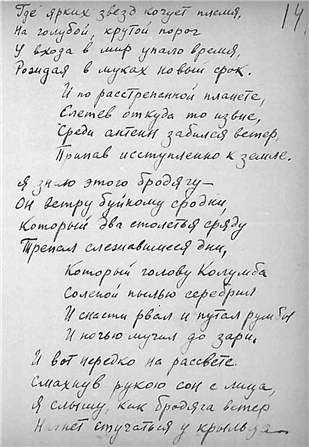 Где ярких звезд кочует племя,
14
На голубой, крутой порог
У входа в мир упало время,
Рождая в муках новый срок.
И по растрепанной планете,
Слетев откуда то извне,
Среди антенн забился ветер,
Припав исступленно к земле.
Я знаю этого бродягу—
Он ветру буйному сродни,
Который два столетья сряду
Трепал слежавшиеся дни,
Который голову Колумба
Соленой пылью серебрил
И снасти рвал и путал румбы
И ночью мучил до зари,
И вот нередко на рассвете
Смахнув рукою сон с лица,
Я слышу, как бродяга ветер
стучаться у крыльца